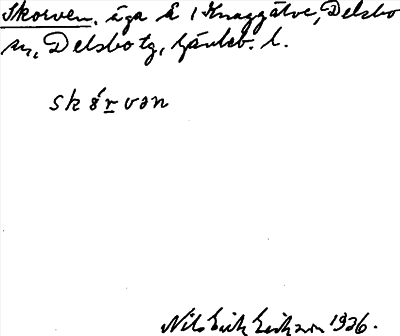 Skorven, äga å i Knaggälve, Delsbo
sn, Delsbo tg, Gävleb. l.
skórvən
Nils Erik Erikson 1936.